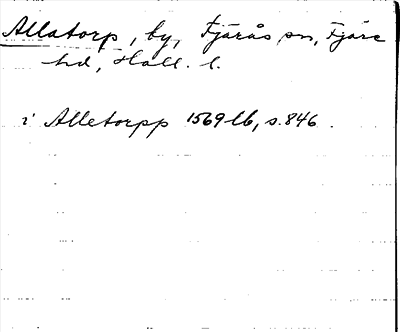 Allatorp, by, Fjärås sn, Fjäre
hd, Hall. l.
i Alletorpp 1569 lb, s. 846.